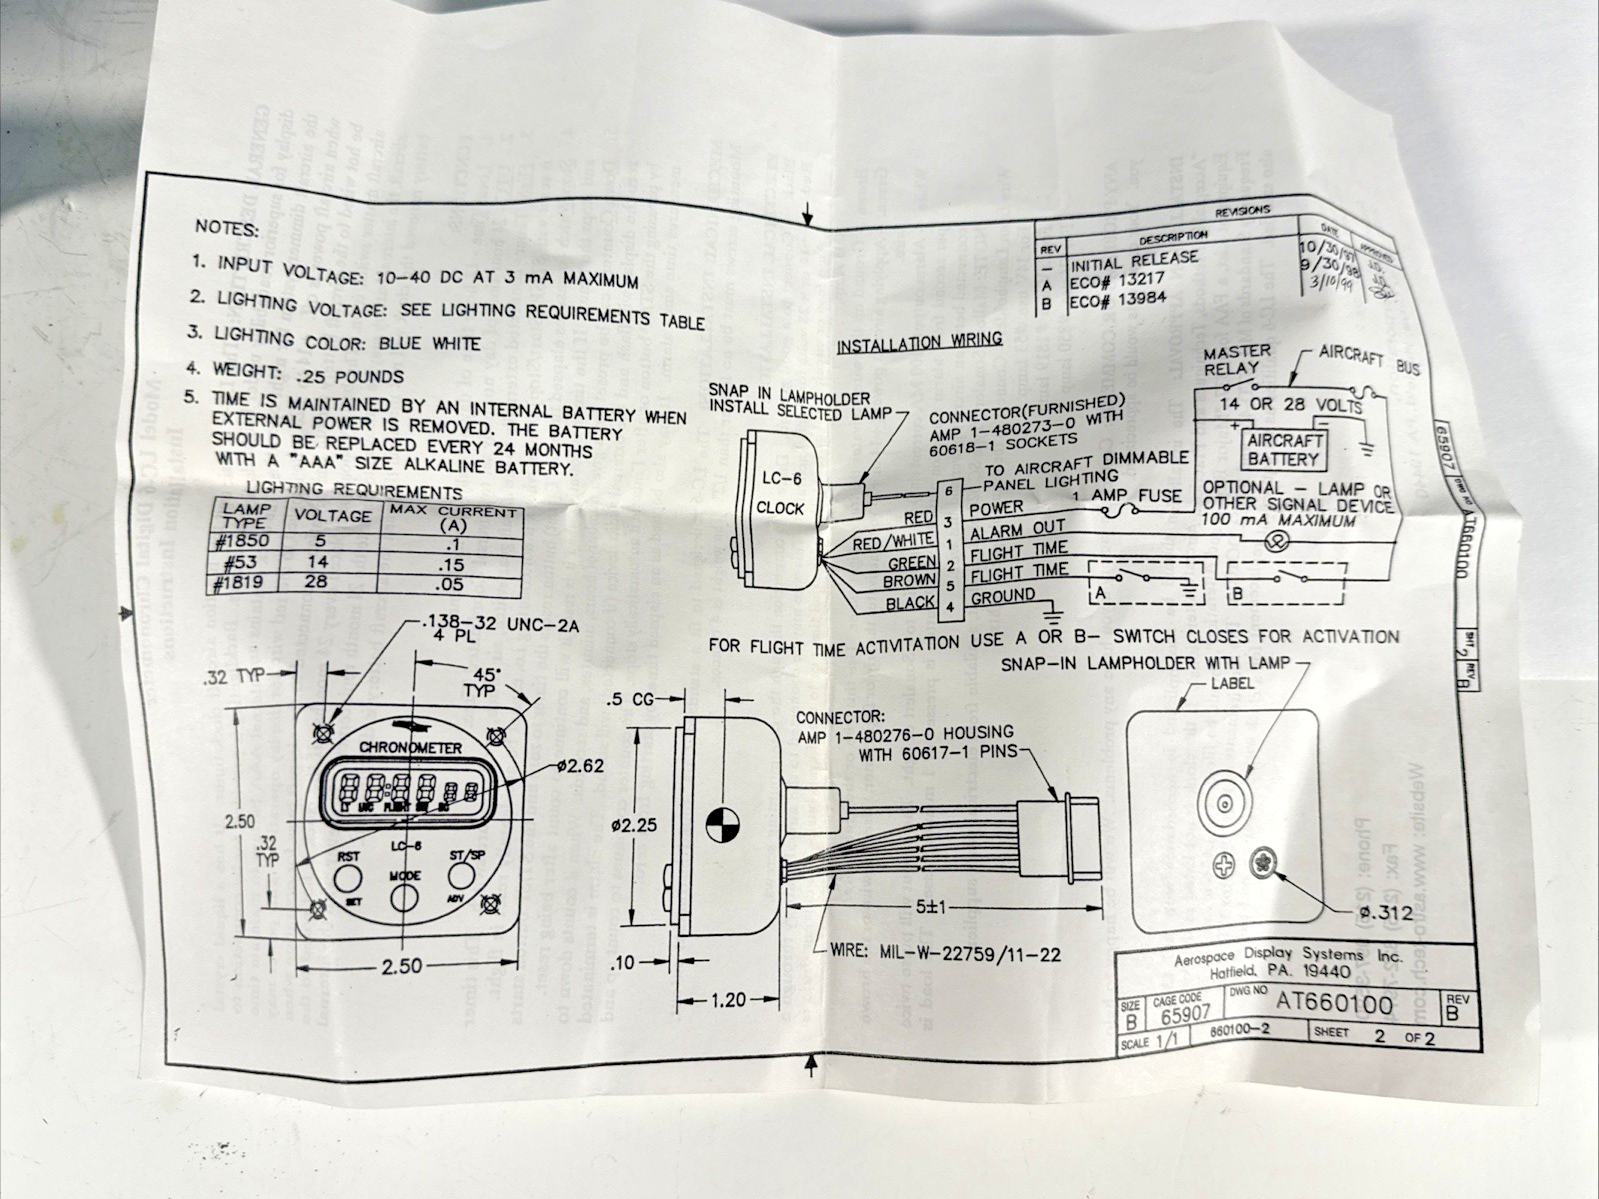 NOTES:
1. INPUT VOLTAGE: 10-40 DC AT 3 mA MAXIMUM
2. LIGHTING VOLTAGE: SEE LIGHTING REQUIREMENTS TABLE
3. LIGHTING COLOR: BLUE WHITE
4. WEIGHT: .25 POUNDS
5. TIME IS MAINTAINED BY AN INTERNAL BATTERY WHEN
EXTERNAL POWER IS REMOVED. THE BATTERY
SHOULD BE REPLACED EVERY 24 MONTHS
WITH A "AAA" SIZE ALKALINE BATTERY.
LIGHTING REQUIREMENTS
LAMP TYPE VOLTAGE MAX CURRENT (A)
#1850 5 .1
#53 14 .15
#1819 28 .05
REVISIONS
REV DESCRIPTION DATE APPROVED
- INITIAL RELEASE 10/30/97 J.D.
A ECO# 13217 9/30/98
B ECO# 13984 3/10/99
INSTALLATION WIRING
SNAP IN LAMPHOLDER
INSTALL SELECTED LAMP
CONNECTOR(FURNISHED)
AMP 1-480273-0 WITH
60618-1 SOCKETS
MASTER
RELAY
AIRCRAFT BUS
14 OR 28 VOLTS
+ -
AIRCRAFT
BATTERY
LC-6
CLOCK
TO AIRCRAFT DIMMABLE
PANEL LIGHTING
1 AMP FUSE
OPTIONAL - LAMP OR
OTHER SIGNAL DEVICE
100 mA MAXIMUM
6
RED 3 POWER
RED/WHITE 1 ALARM OUT
GREEN 2 FLIGHT TIME
BROWN 5 FLIGHT TIME
BLACK 4 GROUND
A
B
FOR FLIGHT TIME ACTIVITATION USE A OR B- SWITCH CLOSES FOR ACTIVATION
65907
DWG NO AT660100
SHT 2 REV B
.138-32 UNC-2A
4 PL
.32 TYP
45° TYP
CHRONOMETER
88:88 88
LT FLIGHT
LC-6
RST
SET
MODE
ST/SP
ADV
ø2.62
2.50
.32
TYP
2.50
.5 CG
ø2.25
.10
1.20
CONNECTOR:
AMP 1-480276-0 HOUSING
WITH 60617-1 PINS
5±1
WIRE: MIL-W-22759/11-22
SNAP-IN LAMPHOLDER WITH LAMP
LABEL
ø.312
Aerospace Display Systems Inc.
Hatfield, PA. 19440
SIZE B
CAGE CODE 65907
DWG NO AT660100
REV B
SCALE 1/1
660100-2
SHEET 2 OF 2